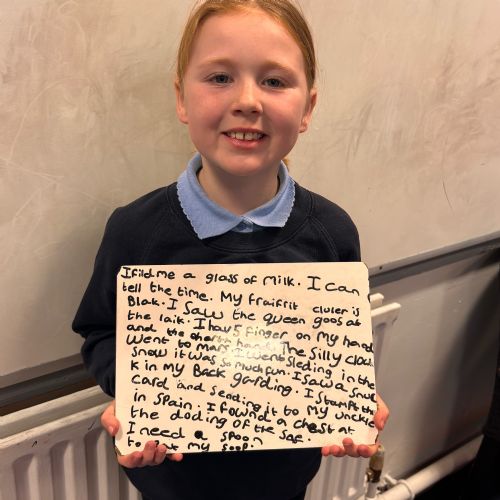 I fild me a glass of milk. I can
tell the time. My fraifrit culer is
Blak. I Saw the queen goos at
the laik. I hav 5 finger on my hand
and the other hand. The Silly clow
went to mars. I went Sleding in the
snow it was so much fun. I saw a snu
k in my Back garding. I stampt the
card and sending it to my unckle
in spain. I fownd a chest at
the doding of the sae.
I need a spoon
to eat my soop.